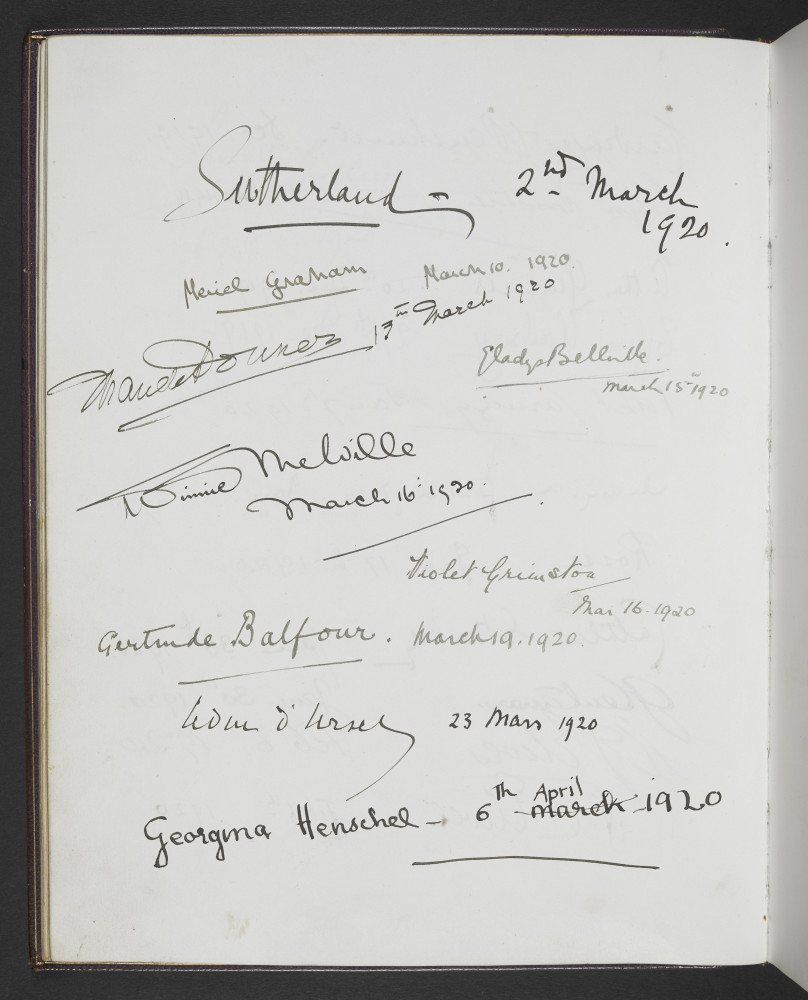 Sutherland - 2nd March
1920.
Meriel Graham March 10. 1920.
Maude 13th March 1920
Gladys Bellville.
March 15th 1920
Winnie Melville
March 16th 1920.
Violet Grimston
Mar 16. 1920
Gertrude Balfour. March 19. 1920.
d'Ursel 23 Mars 1920
Georgina Henschel - 6th April March 1920